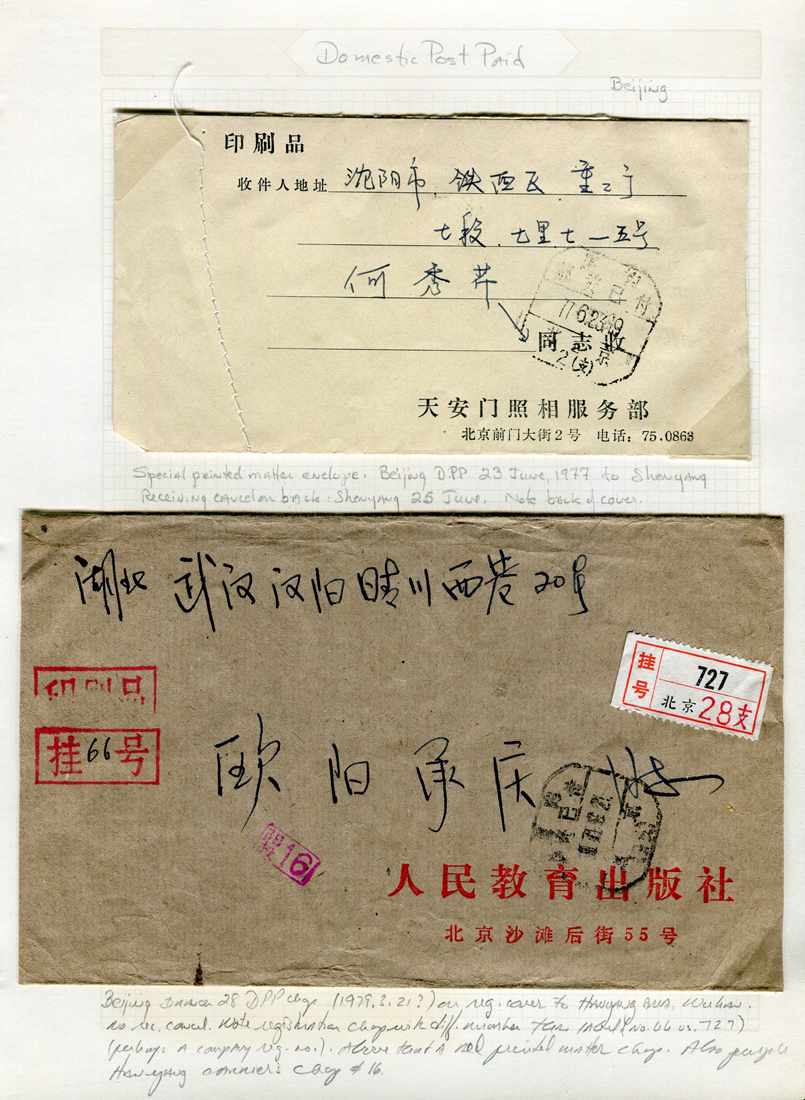 Domestic Post Paid
Beijing
印刷品
收件人地址 沈阳市 铁西区 重工
七段 七里七一五号
何秀芹
同志收
国内
邮资已付
77.6.23.19
北京
2(支)
天安门照相服务部
北京前门大街2号 电话: 75.0863
Special printed matter envelope. Beijing DPP 23 June, 1977 to Shenyang
Receiving cancel on back: Shenyang 25 June. Note back of cover.
湖北 武汉汉阳晴川西巷20号
挂号 727
北京 28支
印刷品
挂66号
欧阳承庆
16
人民教育出版社
北京沙滩后街55号
Beijing Branch 28 DPP chop (1979.?.21?) on reg. cover to Hanyang area, Wuhan.
no rec. cancel. Note registration chop with diff. number than label (no. 66 vs. 727)
(perhaps a company reg. no.). Above that a red printed matter chop. Also purple
Hanyang carrier's chop #16.